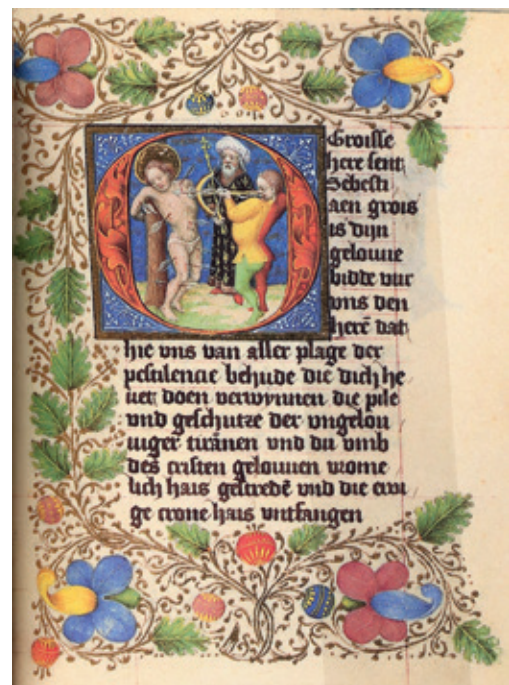 O Groisse
here sent
Sebesti
aen grois
is dijn
gelouue
bidde vur
vns den
herē dat
hie vns van aller plage der
pestilencie behude die dich he
uet doen verwynnen die pile
vnd geschutze der vngelou
uiger tirānen vnd du vmb
des cristen gelouuen vrome
lich hais gestredē vnd die ewi
ge crone hais vntfangen